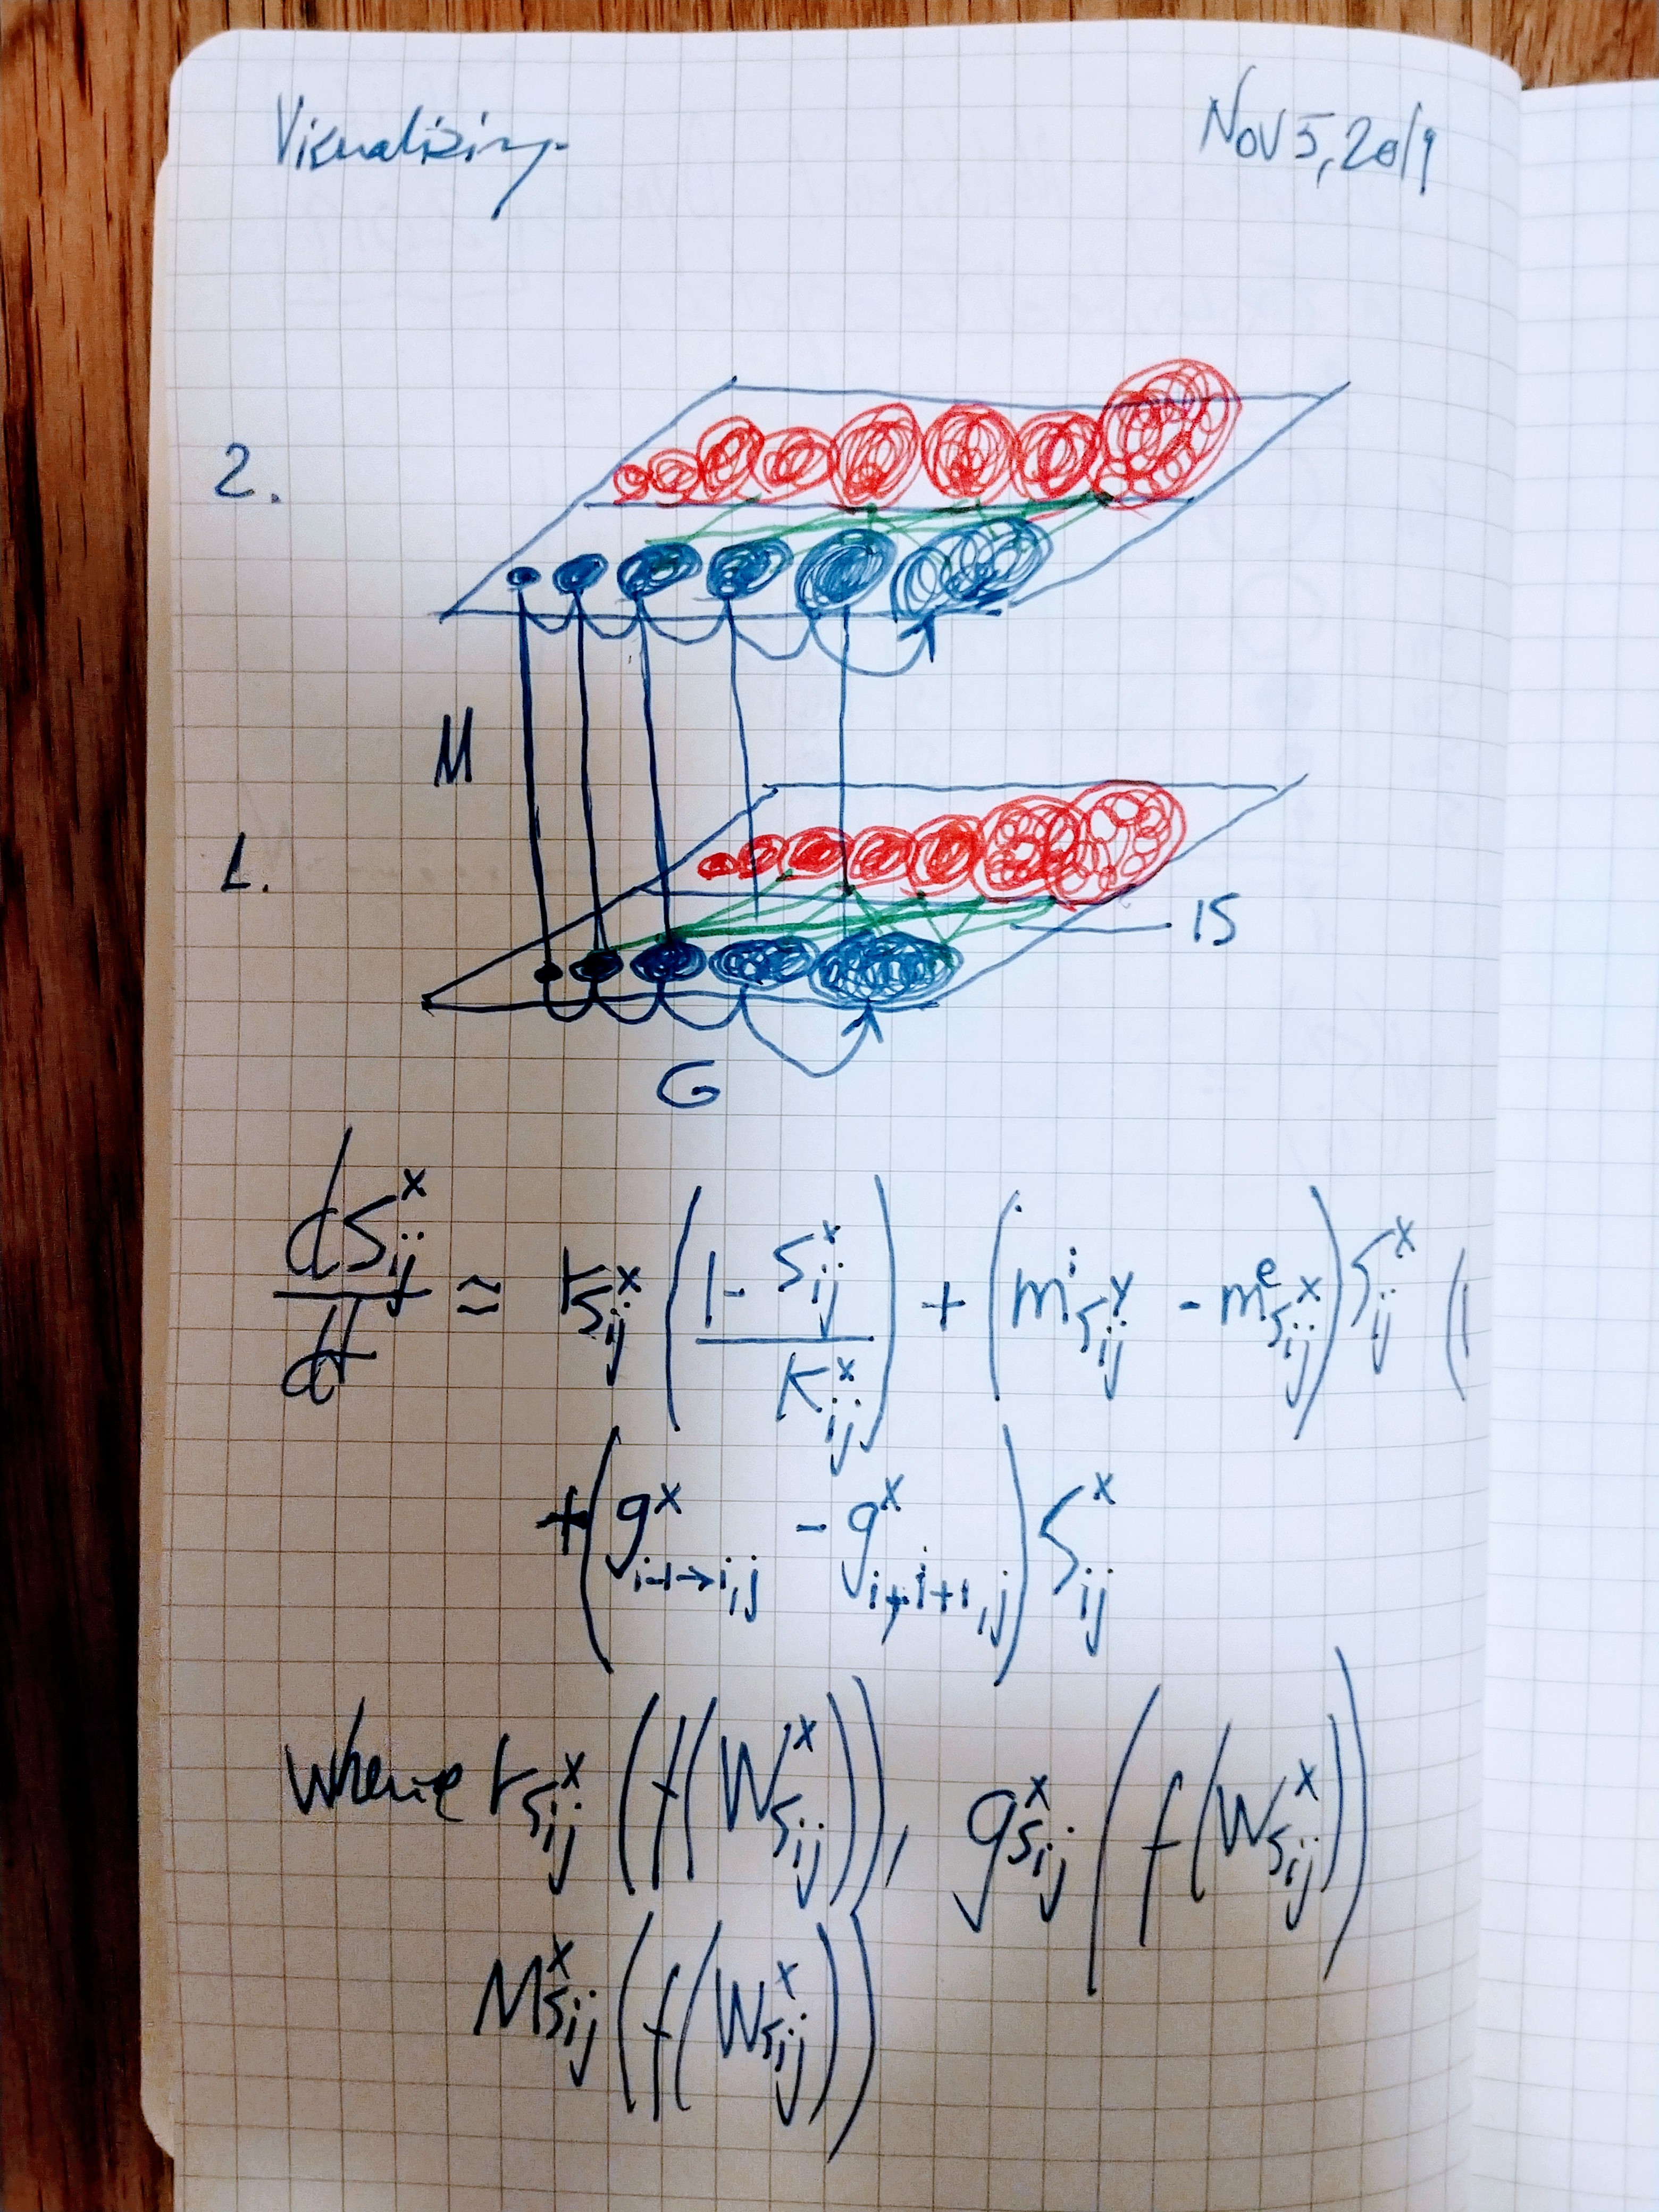 Visualizing Nov 5, 2019
2.
M
1.
IS
G
dS_ij^x/dt ≃ r_{S_ij^x} (1 - S_ij^x / K_ij^x) + (m^i_{S_ij^y} - m^e_{S_ij^x}) S_ij^x (
+ (g^x_{i-1→i,j} - g^x_{i→i+1,j}) S_ij^x
where r_{S_ij^x} (f(W_{S_ij^x})), g_{S_ij^x} (f(W_{S_ij^x}))
M_{S_ij^x} (f(W_{S_ij^x}))